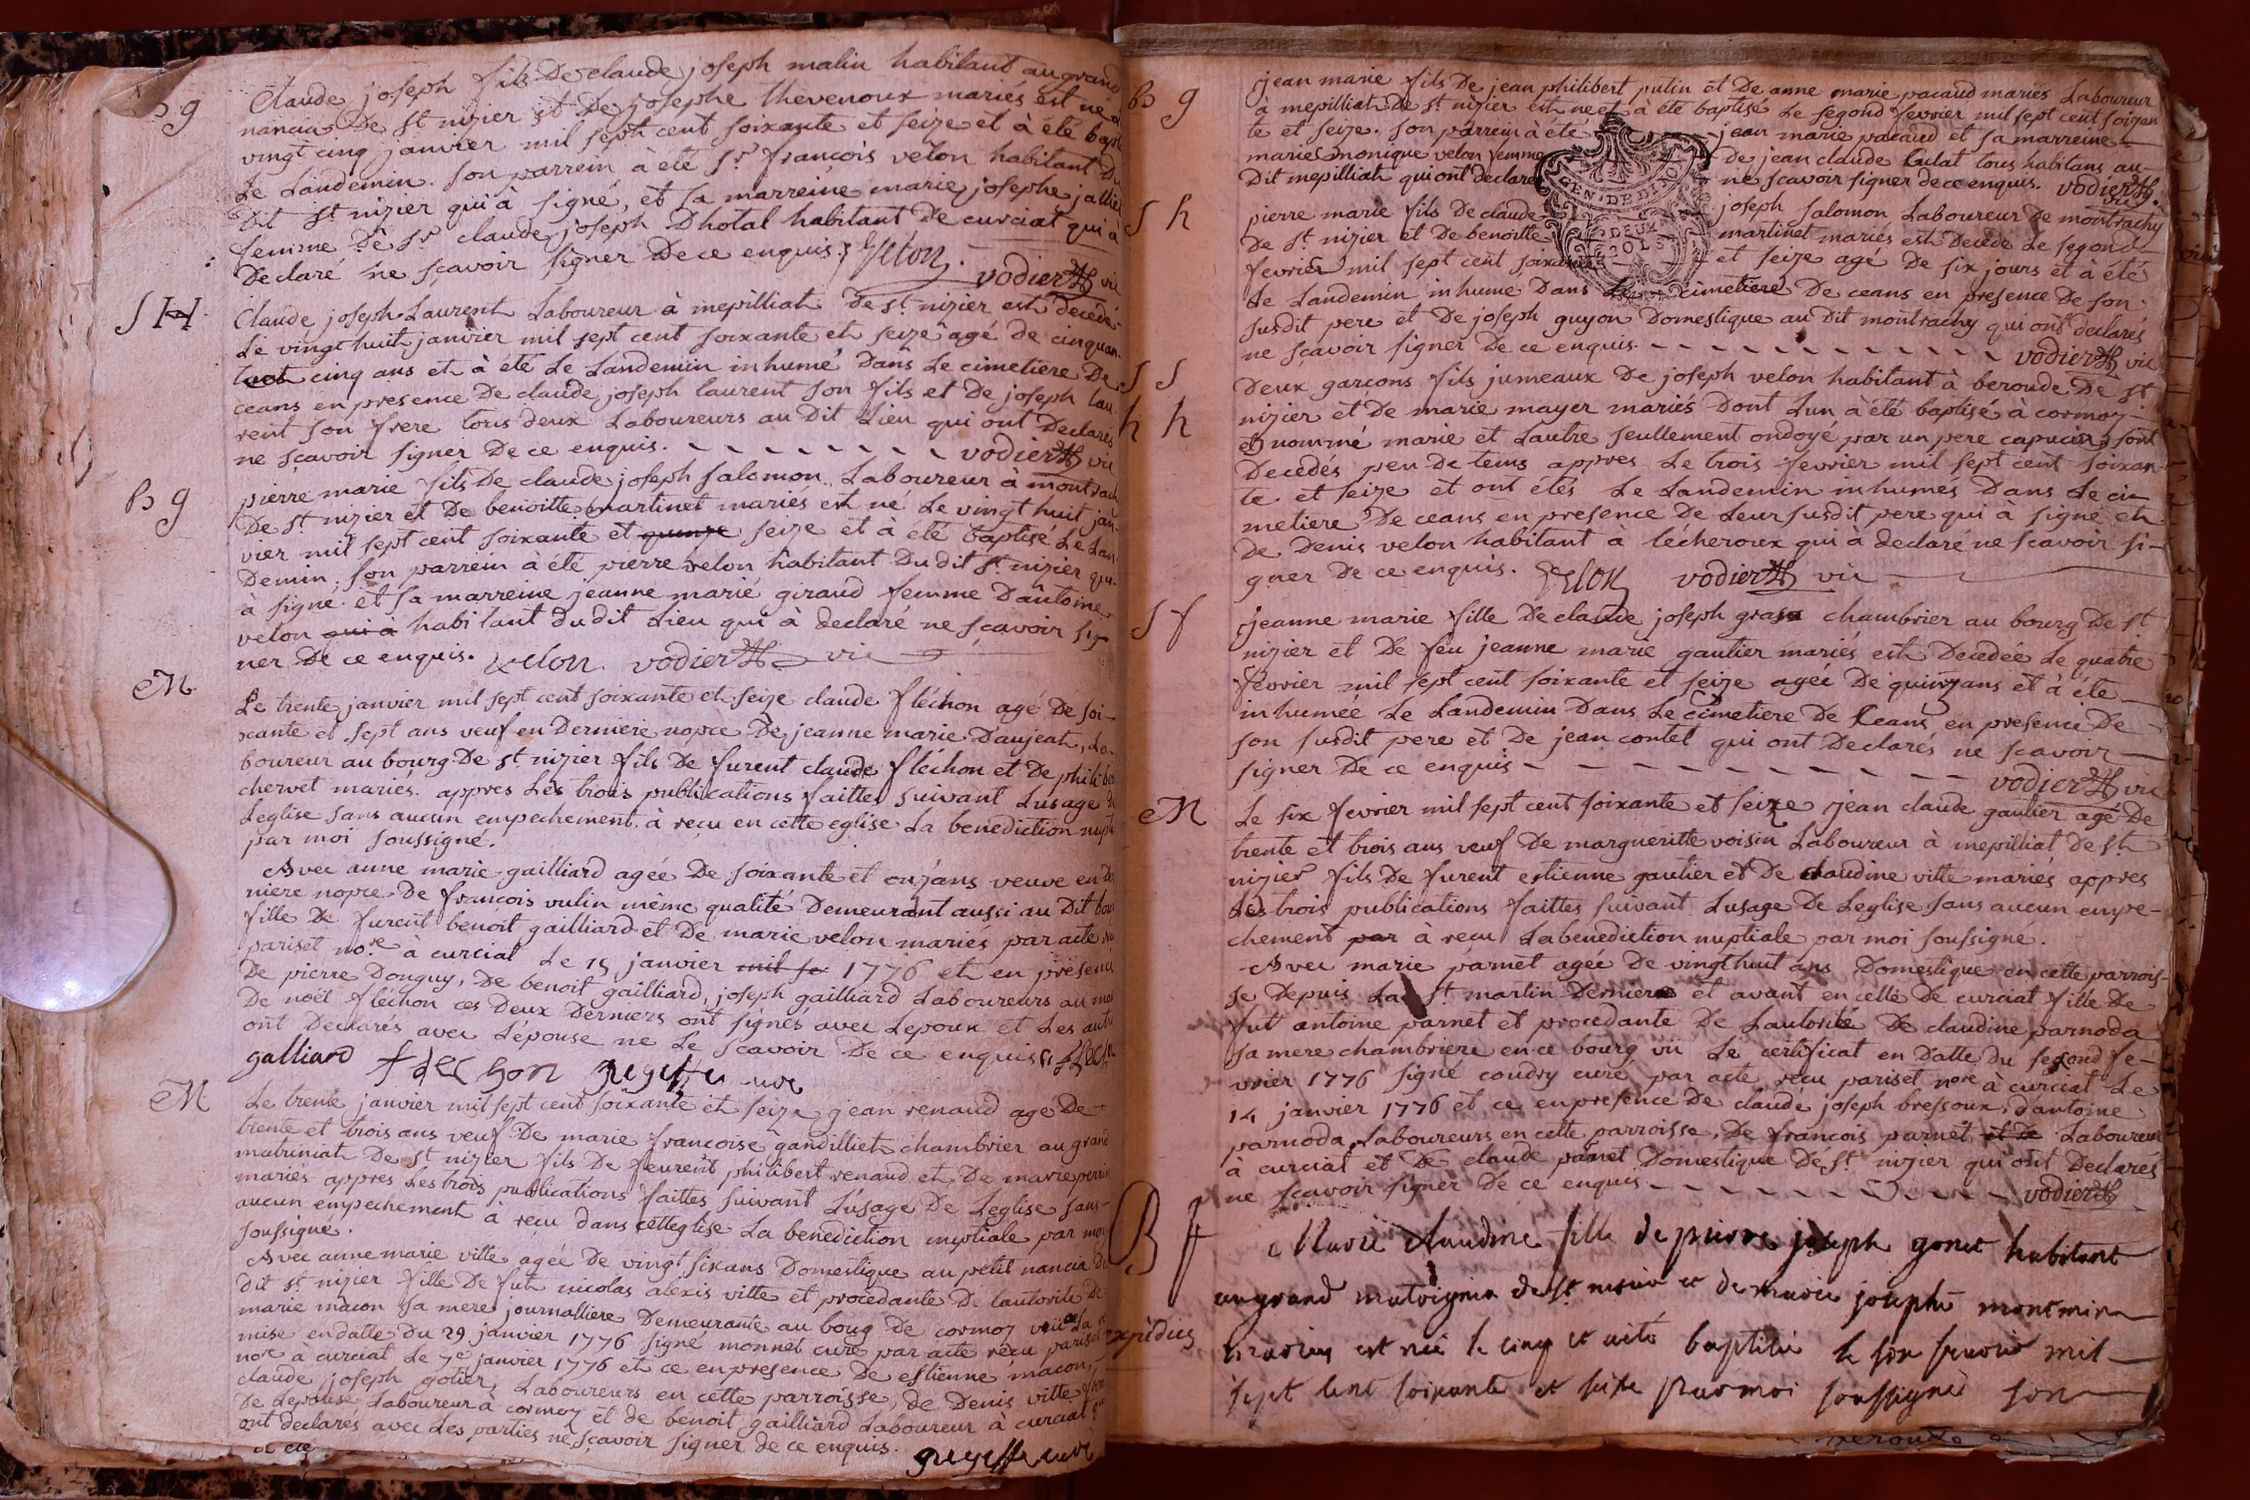 B g
Claude joseph fils De claude joseph malin habitant au grand
nancin De st nizier et De josephe thevenoux mariés est né le
vingt cinq janvier mil sept cent soixante et seize et à été bapt
Le Landemin. son parrein à eté Sr francois velon habitant Du
Dit st nizier qui à signé, et sa marreine marie josephe jallie
femme De Sr claude joseph Dhotal habitant De curciat qui à
Declaré ne sçavoir signer De ce enquis. Velon. vodier vic
S H
Claude joseph Laurent Laboureur à mepilliat De st nizier est decedé
Le vingt huit janvier mil sept cent soixante et seize agé de cinquan
cinq ans et à été Le Landemin inhumé Dans Le cimetiere De
ceans en presence De claude joseph laurent son fils et De joseph lau
rent son frere tous deux Laboureurs au Dit Lieu qui ont Declarés
ne sçavoir signer De ce enquis. vodier vic
B g
pierre marie fils De claude joseph salomon Laboureur à montrach
De st nizier et De benoitte martinet mariés est né Le vingt huit jan
vier mil sept cent soixante et quinze seize et à été baptisé Le Lan
Demin. son parrein à été pierre velon habitant Du dit st nizier qui
à signé. et sa marreine jeanne marie giraud femme D'antoine
velon qui à habitant dudit Lieu qui à declaré ne sçavoir sig
ner De ce enquis. velon. vodier vic
M
Le trente janvier mil sept cent soixante et seize claude fléchon agé De soi-
xante et sept ans veuf en Derniere nopce De jeanne marie Daujeat, La-
boureur au bourg De st nizier fils De furent claude fléchon et De philibe
chervet mariés. appres Les trois publications faittes suivant L'usage de
Leglise sans aucun empechement à reçu en cette eglise La benediction nupt
par moi soussigné.
Avec anne marie gailliard agée De soixante et onz'ans veuve en de
niere nopce De francois vulin même qualité Demeurant aussi au Dit bou
fille De furent benoit gailliard et De marie velon mariés par acte
pariset nore à curciat Le 15 janvier mil se 1776 et en presence
De pierre Donguy, De benoit gailliard, joseph gailliard Laboureurs au
De noël fléchon ces Deux Derniers ont signés avec Lepoux et Les autr
ont Declarés avec L'épouse ne Le sçavoir De ce enquis
galliard flechon
M
Le trente janvier mil sept cent soixante et seize jean renaud agé De
trente et trois ans veuf De marie francoise gandilliet chambrier au grand
matrinniat De st nizier fils De feurent philibert renaud et De marie perrin
mariés appres Les trois publications faittes suivant L'usage De Leglise sans
aucun empechement à reçu dans cett'eglise La benediction nuptiale par moi
soussigné.
Avec anne marie ville agée De vingt six ans Domestique au petit nancin Du
dit st nizier fille De fut nicolas alexis ville et procedante De lautorité De
marie macon sa mere journalliere Demeurante au boug De cormoz vüe La
mise en datte du 29 janvier 1776 signé monnet curé par acte reçu pariset
nore à curciat Le 7e janvier 1776 et ce en presence De estienne macon,
claude joseph golier, Laboureurs en cette parroisse, de Denis ville
De Lepouse Laboureur à cormoz et de benoit gailliard Laboureur à curciat
ont declarés avec Les parties ne sçavoir signer de ce enquis.
B g
jean marie fils De jean philibert putin et De anne marie pacaud mariés Laboureur
à mepilliat de st nizier est né et à été baptisé Le segond fevrier mil sept cent soixan
te et seize. son parrein à été jean marie pacaud et sa marreine
marie monique velon femme de jean claude Culat tous habitans au
Dit mepilliat qui ont declaré ne scavoir signer de ce enquis. vodier
GEN. DE DIJON
DEUX SOLS
S h
pierre marie fils De claude joseph salomon Laboureur De montrachy
De st. nizier et De benoitte martinet mariés est Decedé Le segond
fevrier mil sept cent soixante et seize agé De six jours et à été
Le Landemin inhume Dans Le cimetiere De ceans en presence De son
susdit pere et De joseph guyon Domestique au Dit montrachy qui ont declarés
ne sçavoir signer De ce enquis. vodier vic
S S
h h
Deux garcons fils jumeaux De joseph velon habitant à beroude De st
nizier et De marie mayer mariés Dont Lun à été baptisé à cormoz
et nommé marie et Lautre seullement ondoyé par un pere capucin, sont
Decedés peu De tems appres Le trois fevrier mil sept cent soixan-
te et seize et ont étés Le Landemin inhumés Dans Le ci-
metiere De ceans en presence De Leur susdit pere qui à signé et
De Denis velon habitant à lécheroux qui à declaré ne scavoir si-
gner De ce enquis. Velon vodier vic
S f
jeanne marie fille De claude joseph gras chambrier au bourg De st
nizier et De feu jeanne marie gautier mariés est Decedée Le quatre
fevrier mil sept cent soixante et seize agée De quinz'ans et à été
inhumée Le Landemin Dans Le cimetiere De Ceans en presence De
son susdit pere et De jean contet qui ont Declarés ne scavoir
signer De ce enquis vodier vic
M
Le six fevrier mil sept cent soixante et seize jean claude gautier agé De
trente et trois ans veuf De margueritte voisin Laboureur à mepilliat De st
nizier fils De furent estienne gautier et De claudine ville mariés appres
Les trois publications faittes suivant Lusage De Leglise sans aucun empe-
chement par à reçu La benediction nuptiale par moi soussigné.
Avec marie parnet agée De vingt huit ans Domestique en cette parrois-
se Depuis La st martin Derniere et avant en celle De curciat fille De
fut antoine parnet et procedante De Lautorité De claudine parnoda
sa mere chambriere en ce bourg vü Le certificat en Datte du segond fe-
vrier 1776 signé coudry curé par acte reçu pariset nore à curciat Le
14 janvier 1776 et ce en presence De claude joseph bressoux, d'antoine
parnoda Laboureurs en cette parroisse, De francois parnet et De Laboureur
à curciat et De claude parnet Domestique De st nizier qui ont Declarés
ne sçavoir signer De ce enquis vodier
B f
Marie claudine fille de pierre joseph gonet habitant
au grand matrignia de st nizier et de marie josephe montmin
mariés est née le cinq et a été baptisée le six fevrier mil
sept cent soixante et seize par moi soussigné son
expédiée